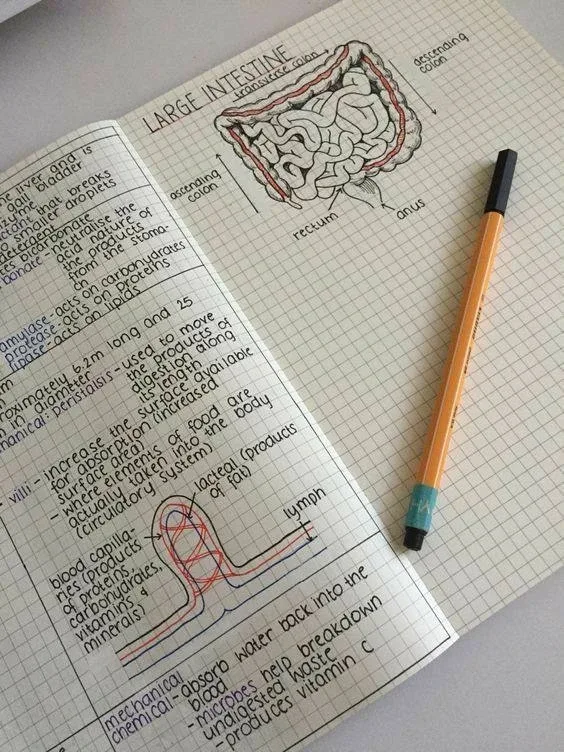 he liver and is
gall bladder
enzyme
that breaks
smaller droplets
detergent
bicarbonate
- neutralise the
acid nature of
the products
from the stoma-
ch
amylase - acts on carbohydrates
protease - acts on proteins
lipase - acts on lipids
6.2m long and 25
m in diameter
peristalsis - used to move
the products of
digestion along
its length
villi - increase the surface available
for absorption (increased
surface area)
- where elements of food are
actually taken into the body
(circulatory system)
lacteal (products
of fat)
lymph
blood capilla-
ries (products
of proteins,
carbohydrates,
vitamins &
minerals)
mechanical
chemical
- absorb water back into the
blood
- microbes help breakdown
undigested waste
- produces vitamin C
LARGE INTESTINE
transverse colon
descending
colon
ascending
colon
rectum
anus